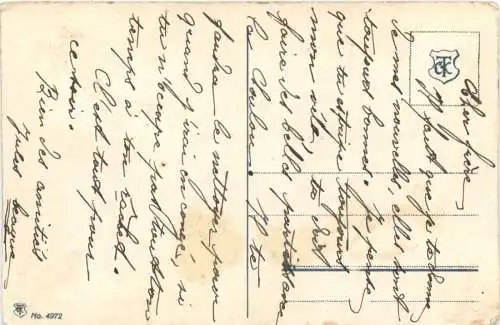 Cher frère,
Il faut que je te donne
de mes nouvelles, elles sont
toujours bonnes. Je pense
que tu astique toujours
mon vélo. tu dois
faire des belles parties avec
la Il te
faudra le nettoyer pour
quand j'irai en congé, si
tu pas ton
temps à ton
C'est tout pour
ce soir.
Bien des amitiés
Jules
No. 4972